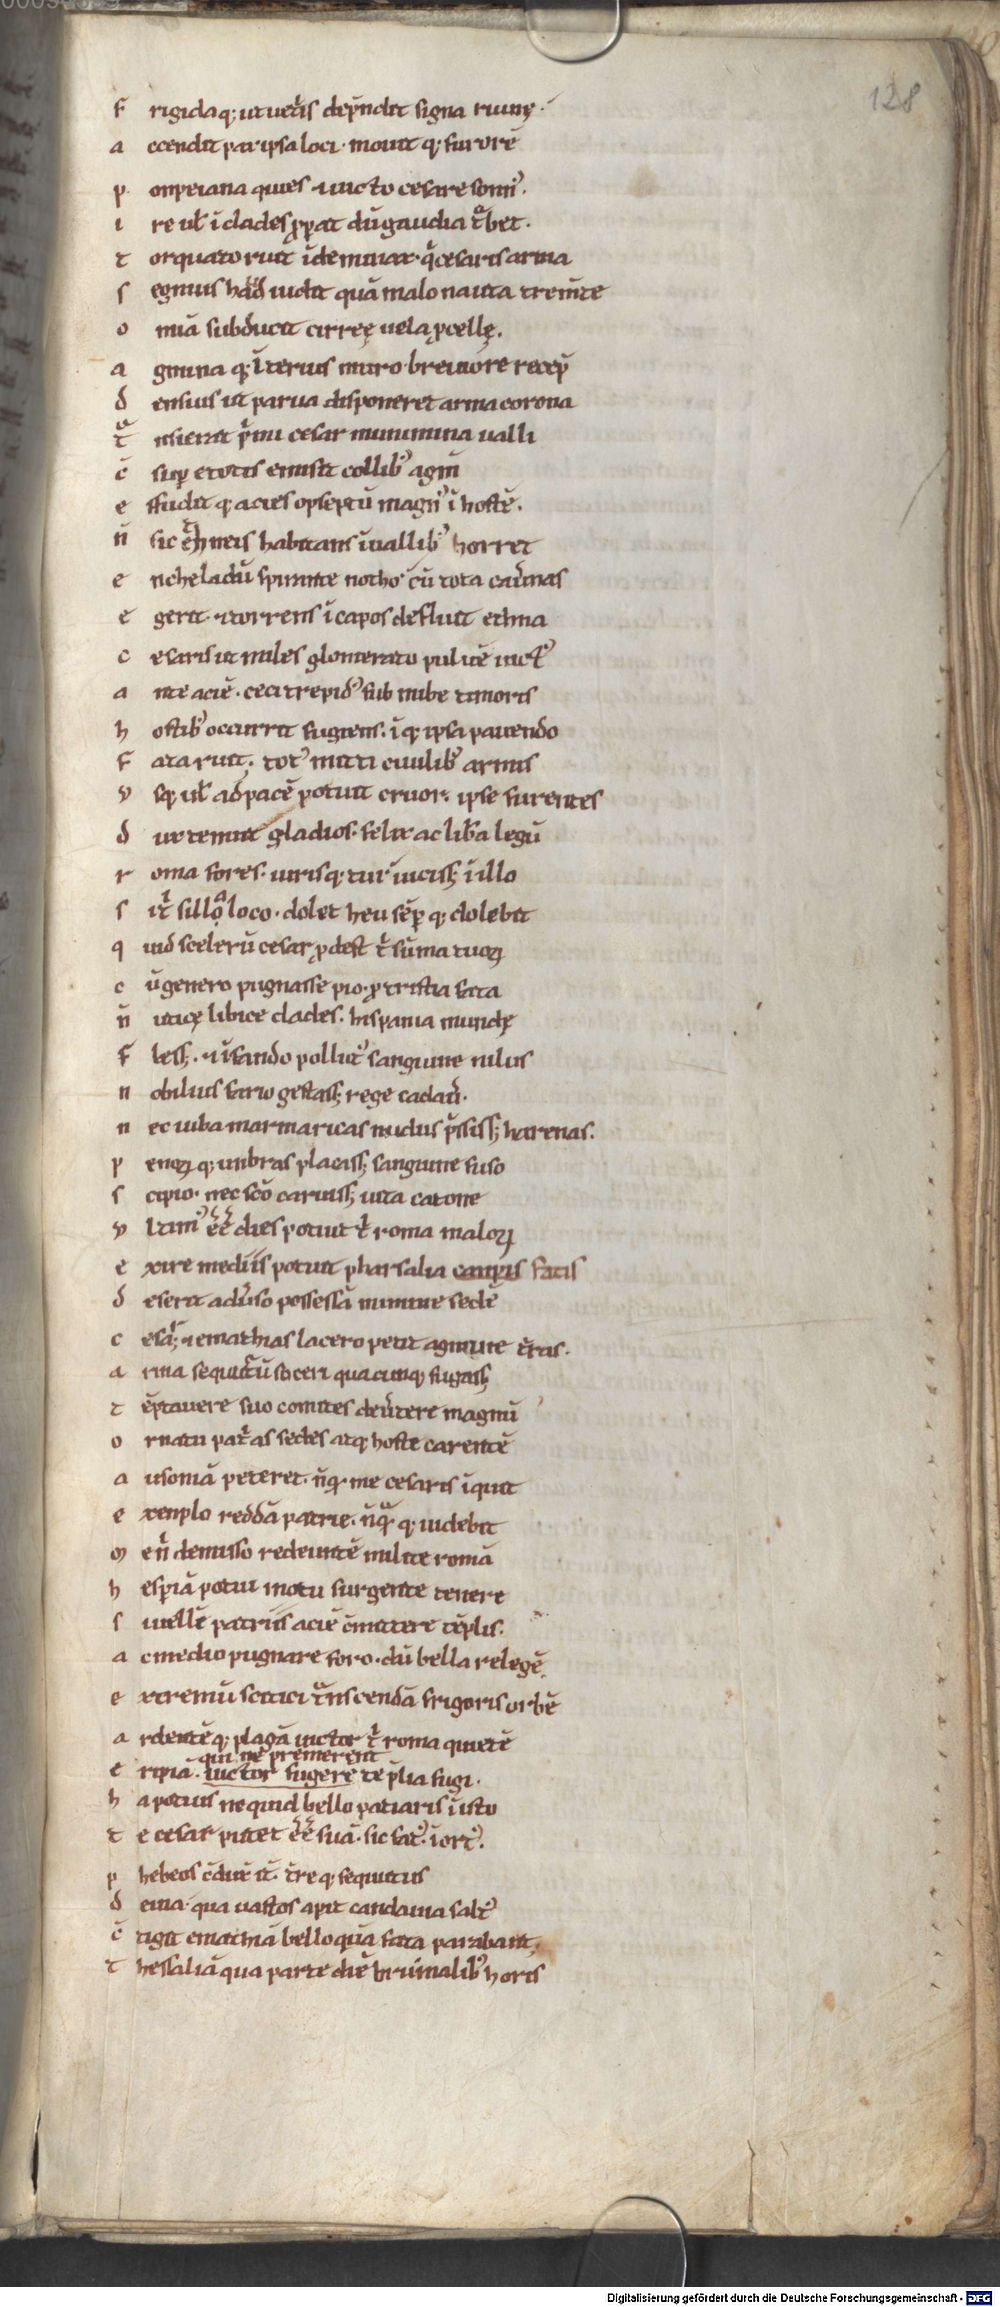 128
F rigidaq; ut uet̾is dep̄ndit signa ruinę.
a ccendit pax ipsa loci. mouit q; furorē
p onpeiana quies & uicto cesare somn᷒.
i re ul̾ ī clades ꝓperat dū gaudia tᵃbet.
t orquato ruit īde minax. q̾ cesaris arma
s egnius haᵘd uidit quā malo nauta tremēte
o mīa subducit cirreę uela ꝓcellę.
a gmina q; īterius muro breuiore recep̄
d ensius ut parua disponeret arma corona
tᵃ nsierat p̾mi cesar munimina ualli
c̄ sup̱ e totis emisit collib᷒ agm̄
e ffudit q; acies opseptū magn᷒ ī hostē.
n̄ sic ethneis habitans ī uallib᷒ horret
e ncheladū spirante notho. cū tota cau̾nas
e gerit. & torrens ī capos defluit ethna
c esaris ut miles glomerato puluē uict᷒
a nte aciē. ceci trepid᷒ sub nube timoris
h ostib᷒ occurrit fugiens. ī q; ipsa pauendo
f ata ruit. tot᷒ mitti ciuilib᷒ armis
v sq; ul̾ ad pacē potuit cruor. ipse furentes
d ux tenuit gladios. felix ac lib̾a legū
r oma fores. iurisq; tui. uiciss; ī illo
s i tⁱ sillᵃ loco. dolet heu sēp̱ q; dolebit
q uid scelerū cesar ꝓdest tⁱ sūma tuoꝝ
c ū genero pugnasse pio. ꝓ tristia fata
n̄ uticę libice clades. hispania mundę
f less;. & īfando pollut᷒ sanguine nilus
n obilius fario gestass; rege cadau̾.
n ec iuba marmaricas nudus p̾ssiss; harenas.
p enoꝝ q; umbras placass; sanguine fuso
s cipio. nec sc̄o caruiss; uita catone
v ltim᷒ eē dies potuit tⁱ roma maloꝝ
e xire mediis potuit pharsalia campis fatis
d eserit adu̾so possessā numine sedē
c esar; & emathias lacero petit agmine tr̄as.
a rma secuturū soceri quacunq; fugass;
t ēptauere suo comites deu̾tere magnū
o rnatu pat̾as sedes atq; hoste carentē
a usoniā peteret. nq̄ me cesaris īquit
e xenplo reddā patrie. nq̄ q; uidebit
m en̄ demisso redeuntē milite romā
h esp̱iā potui motu surgente tenere
s i uellē patriis aciē c̄mittere tēplis.
a c medio pugnare foro. dū bella relegē
e xtremū scitici tᵃnscendā frigoris orbē
a rdentēq; plagā uictor tⁱ roma quietē
qui ne premerent
e ripiā. uictor fugere te p̄lia fugi.
h a potius ne quid bello patiaris ī isto
t e cesar putet eē suā. sic fat᷒. ī ort᷒.
p hebeos c̄duxit. tr̄e q; sequutus
d euia. qua uastos ap̱it candauia salt᷒
c̄ tigit emathiā bello quā fata parabant.
t hessaliā qua parte diē brumalib᷒ horis
Digitalisierung gefördert durch die Deutsche Forschungsgemeinschaft - DFG